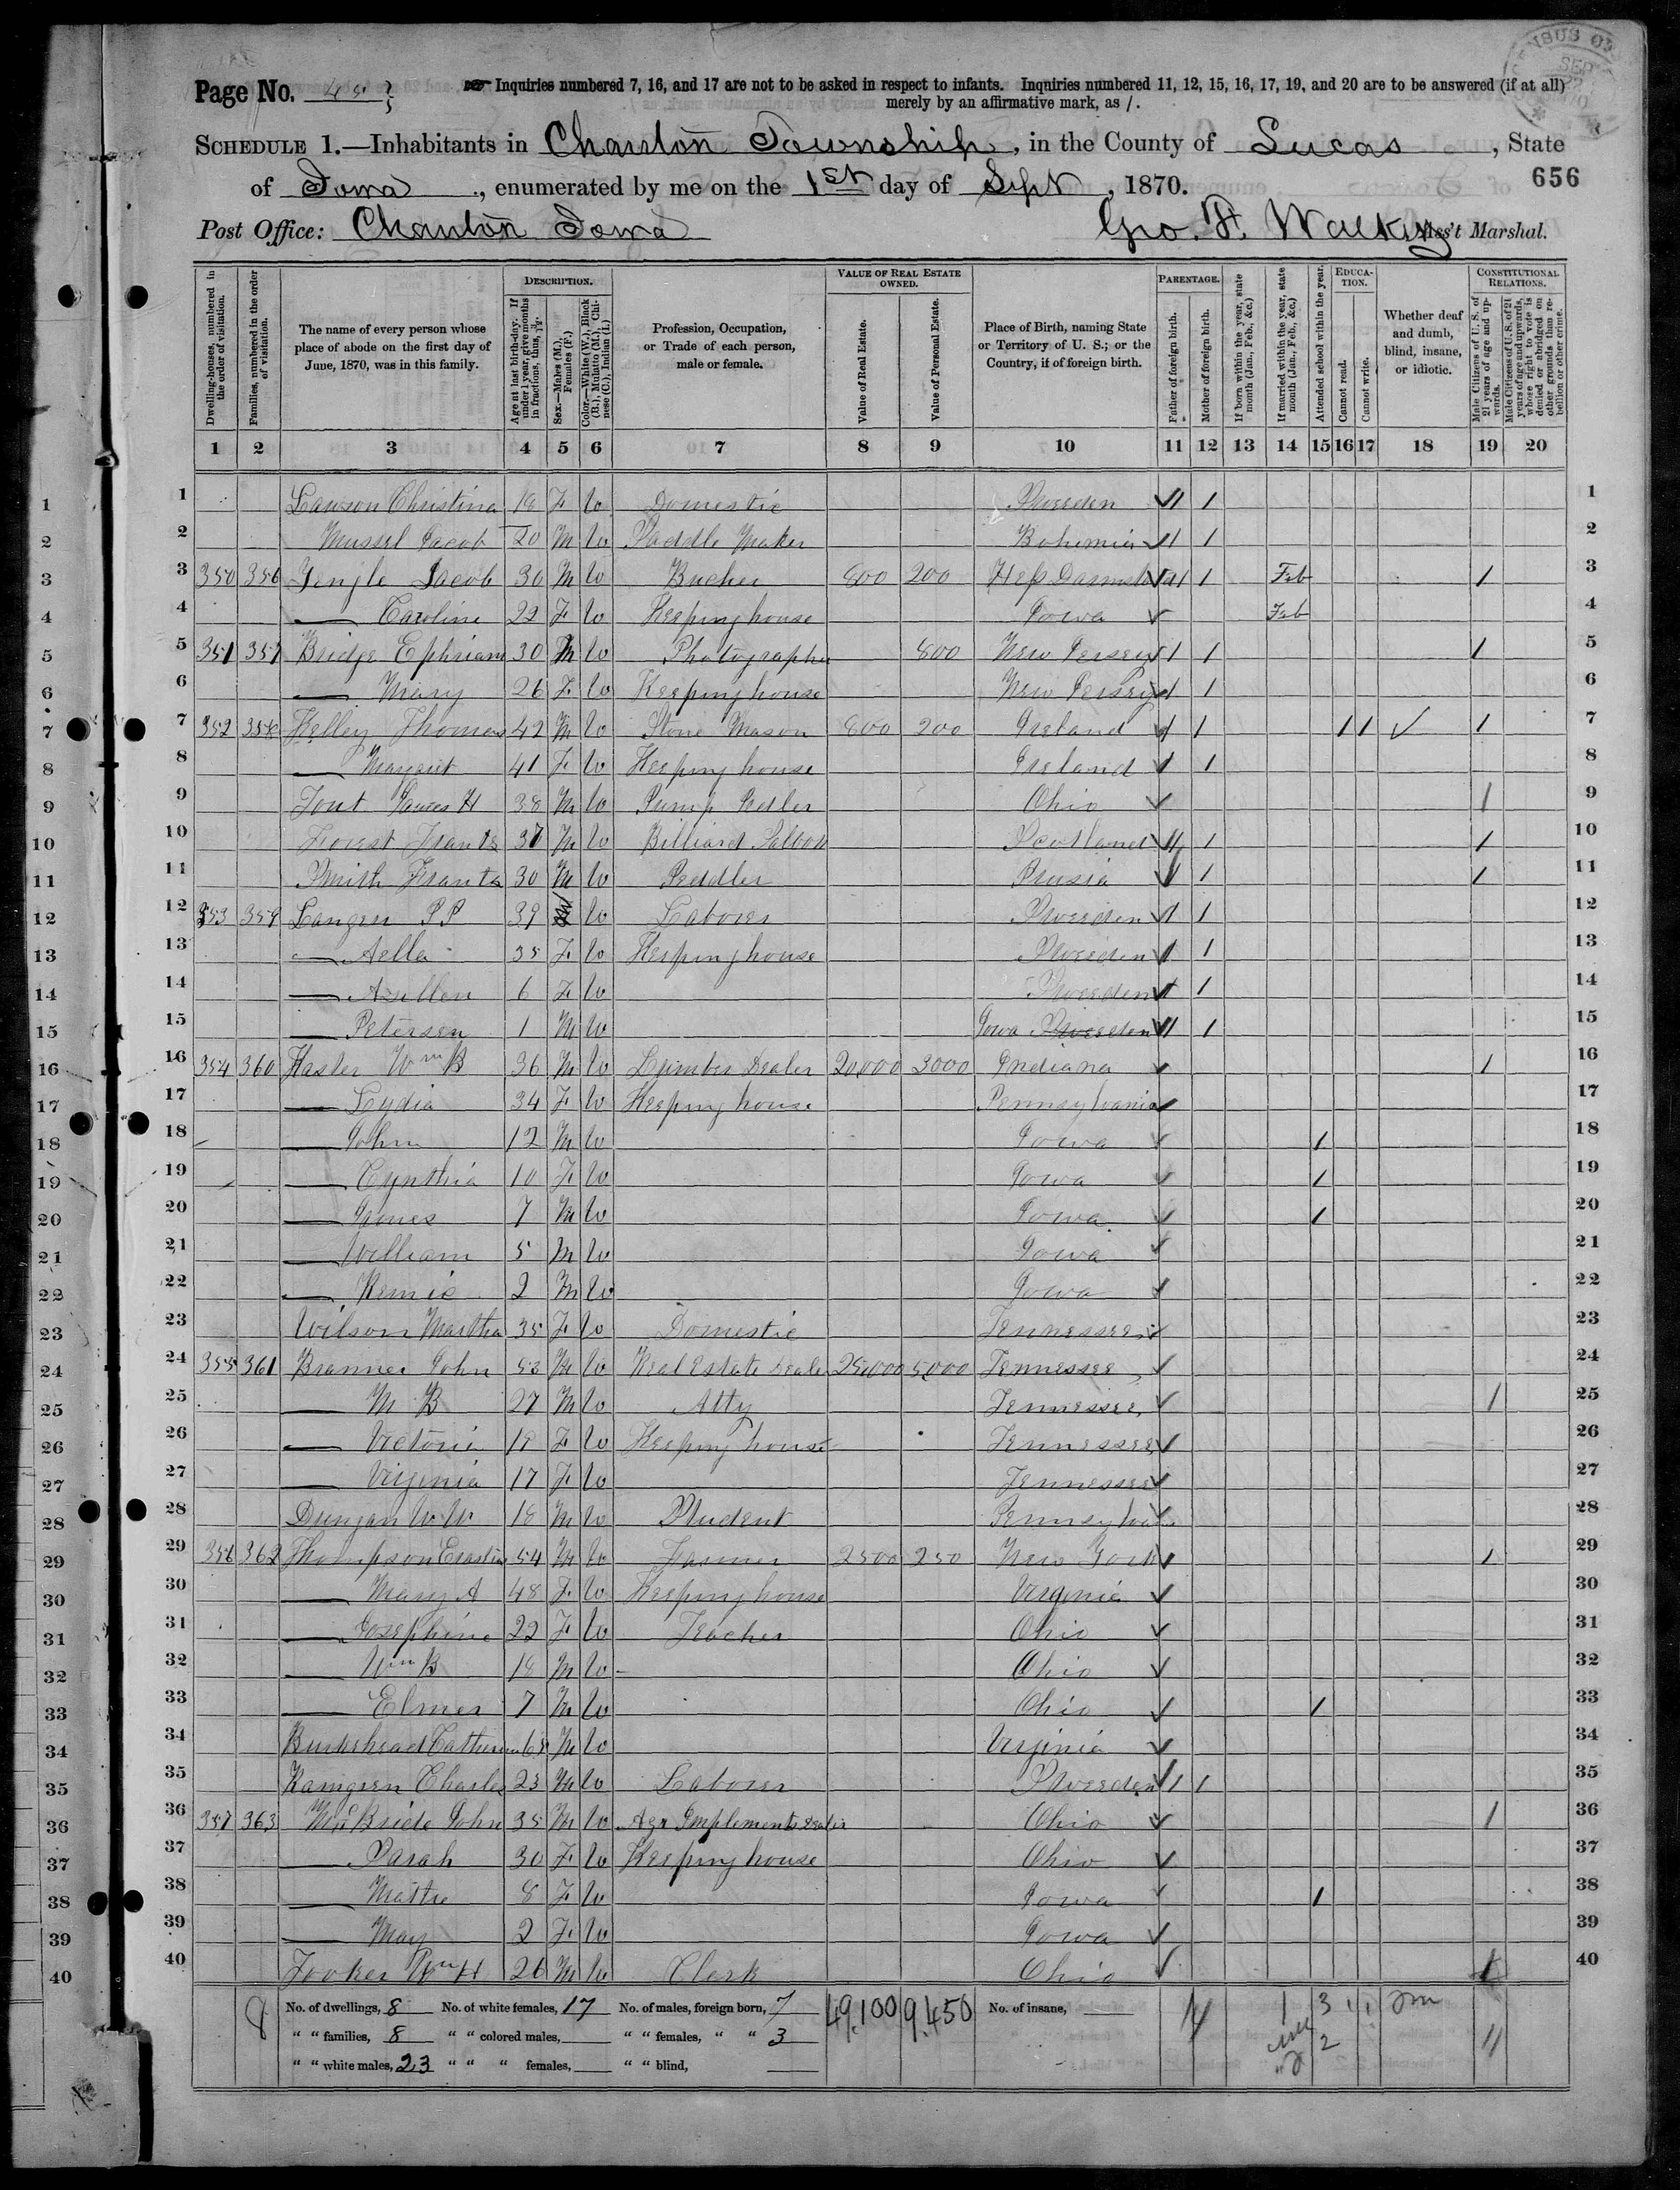 Page No. 45
Inquiries numbered 7, 16, and 17 are not to be asked in respect to infants. Inquiries numbered 11, 12, 15, 16, 17, 19, and 20 are to be answered (if at all)
merely by an affirmative mark, as /.
SCHEDULE 1.—Inhabitants in Chariton Township, in the County of Lucas, State
of Iowa, enumerated by me on the 1st day of Sept, 1870.
656
Post Office: Chariton Iowa Geo. F. Ass't Marshal.
Dwelling-houses, numbered in the order of visitation.
Families, numbered in the order of visitation.
The name of every person whose place of abode on the first day of June, 1870, was in this family.
DESCRIPTION.
Age at last birth-day. If under 1 year, give months in fractions, thus, 3/12.
Sex.—Males (M.), Females (F.)
Color.—White (W.), Black (B.), Mulatto (M.), Chinese (C.), Indian (I.)
Profession, Occupation, or Trade of each person, male or female.
VALUE OF REAL ESTATE OWNED.
Value of Real Estate.
Value of Personal Estate.
Place of Birth, naming State or Territory of U. S.; or the Country, if of foreign birth.
PARENTAGE.
Father of foreign birth.
Mother of foreign birth.
If born within the year, state month (Jan., Feb., &c.)
If married within the year, state month (Jan., Feb., &c.)
Attended school within the year.
EDUCATION.
Cannot read.
Cannot write.
Whether deaf and dumb, blind, insane, or idiotic.
CONSTITUTIONAL RELATIONS.
Male Citizens of U. S. of 21 years of age and upwards.
Male Citizens of U. S. of 21 years of age and upwards, whose right to vote is denied or abridged on other grounds than rebellion or other crime.
1 2 3 4 5 6 7 8 9 10 11 12 13 14 15 16 17 18 19 20
1 Lawson Christina 18 F W Domestic Sweden 1 1 1
2 Mussel Jacob 20 M W Saddle Maker Bohemia 1 1 2
3 350 356 Yengle Jacob 30 M W Bucher 800 200 Hess Darmstadt 1 1 Feb 1 3
4 — Caroline 22 F W Keeping house Iowa Feb 4
5 351 357 Bridge Ephriam 30 M W Photographer 800 New Jersey 1 1 1 5
6 — Mary 26 F W Keeping house New Jersey 1 1 6
7 352 358 Kelley Thomas 42 M W Stone Mason 800 200 Ireland 1 1 1 1 ✓ 1 7
8 — Margret 41 F W Keeping house Ireland 1 1 8
9 Tout James H 38 M W Pump Pedler Ohio 1 9
10 Forest Frank 37 M W Billiard Saloon Scotland 1 1 1 10
11 Smith Frantz 30 M W Peddler Prusia 1 1 1 11
12 353 359 Langren P P 39 M W Laborer Sweden 1 1 12
13 — Aella 35 F W Keeping house Sweden 1 1 13
14 — Asellen 6 F W Sweden 1 1 14
15 — Petersen 1 M W Iowa Sweden 1 1 15
16 354 360 Haster Wm B 36 M W Lumber Dealer 20,000 3000 Indiana 1 16
17 — Lydia 34 F W Keeping house Pennsylvania 17
18 — John 12 M W Iowa 1 18
19 — Cynthia 10 F W Iowa 1 19
20 — James 7 M W Iowa 1 20
21 — William 5 M W Iowa 21
22 — 2 M W Iowa 22
23 Wilson Martha 35 F W Domestic Tennessee 23
24 355 361 Branner John 53 M W Real Estate Dealer 25,000 5,000 Tennessee 24
25 — M B 27 M W Atty Tennessee 1 25
26 — Victoria 19 F W Keeping house Tennessee 26
27 — Virginia 17 F W Tennessee 27
28 Dungan W W 18 M W Student Pennsylva 28
29 356 362 Thompson Erastus 54 M W Farmer 2500 250 New York 1 29
30 — Mary A 48 F W Keeping house Virginia 30
31 — Josephine 22 F W Teacher Ohio 31
32 — Wm B 18 M W Ohio 32
33 — Elmer 7 M W Ohio 1 33
34 Burkshead Catherine 68 M W Virginia 34
35 Kamgren Charles 23 M W Laborer Sweden 1 1 35
36 357 363 McBride John 35 M W Agr Implements Dealer Ohio 1 36
37 — Sarah 30 F W Keeping house Ohio 37
38 — Mattie 8 F W Iowa 1 38
39 — May 2 F W Iowa 39
40 Tooker Wm H 26 M W Clerk Ohio 1 40
8 No. of dwellings, 8 No. of white females, 17 No. of males, foreign born, 7 49,100 9,450 No. of insane, 1 3 1 1
" " families, 8 " " colored males, " " females, " " 3 2 11
" " white males, 23 " " " females, " " blind,